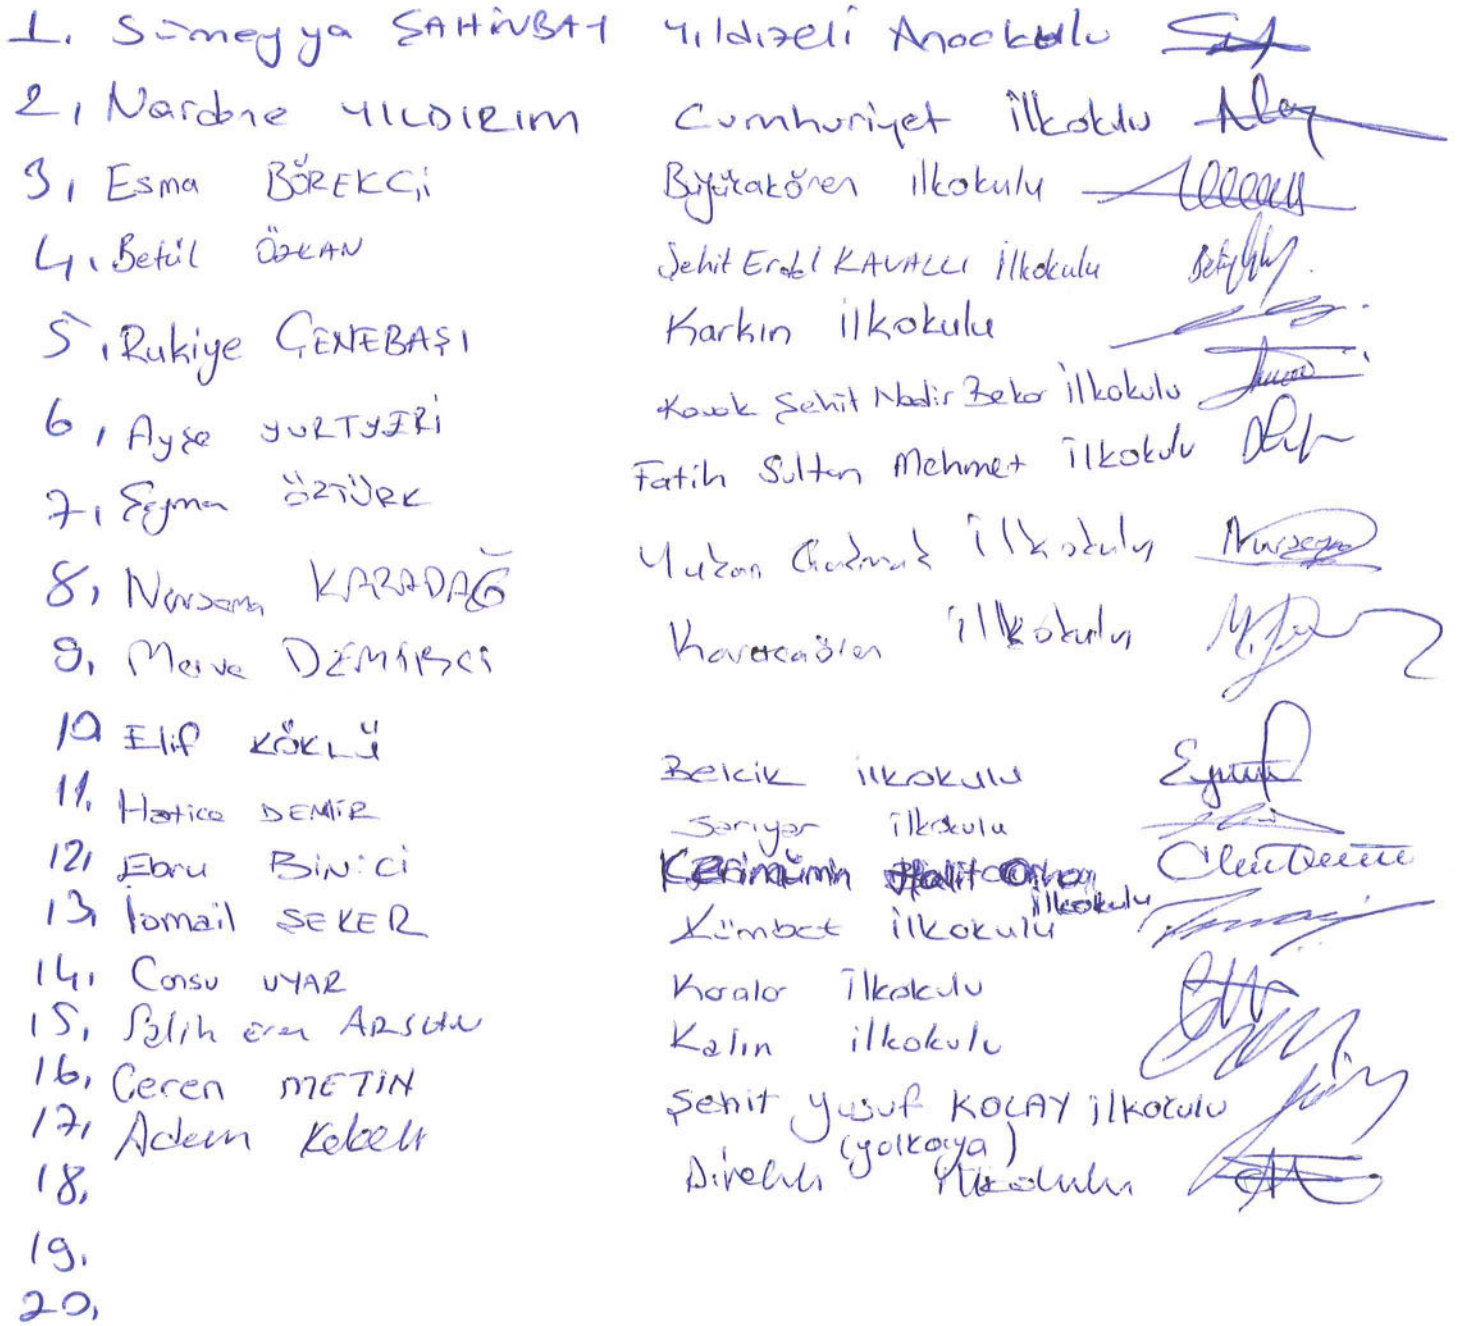 1. Sümeyya ŞAHİNBAY Yıldızeli Anaokulu
2, Nardane YILDIRIM Cumhuriyet İlkokulu
3, Esma BÖREKÇİ ilkokulu
4, Betül ÖZKAN Şehit Erdal KAVALLI İlkokulu
5, Rukiye ÇENEBAŞI Karkın İlkokulu
6, Ayşe YURTYERİ Kavak Şehit Nadir Beker İlkokulu
7, Şeyma ÖZTÜRK Fatih Sultan Mehmet İlkokulu
8, Nursema KARADAĞ Yukarı Çakmak İlkokulu
9, Merve DEMİRCİ Karacaören İlkokulu
10 Elif KÖKLÜ Belcik ilkokulu
11. Hatice DEMİR Sarıyar ilkokulu
12, Ebru BİNİCİ Kerimümin Halit Orhan ilkokulu
13, İsmail ŞEKER Kümbet ilkokulu
14, Cansu UYAR Karalar İlkokulu
15, Salih Eren ARSLAN Kalın ilkokulu
16, Ceren METİN Şehit Yusuf KOLAY ilkokulu
(yolkaya)
17, Adem Direkli İlkokulu
18,
19.
20,